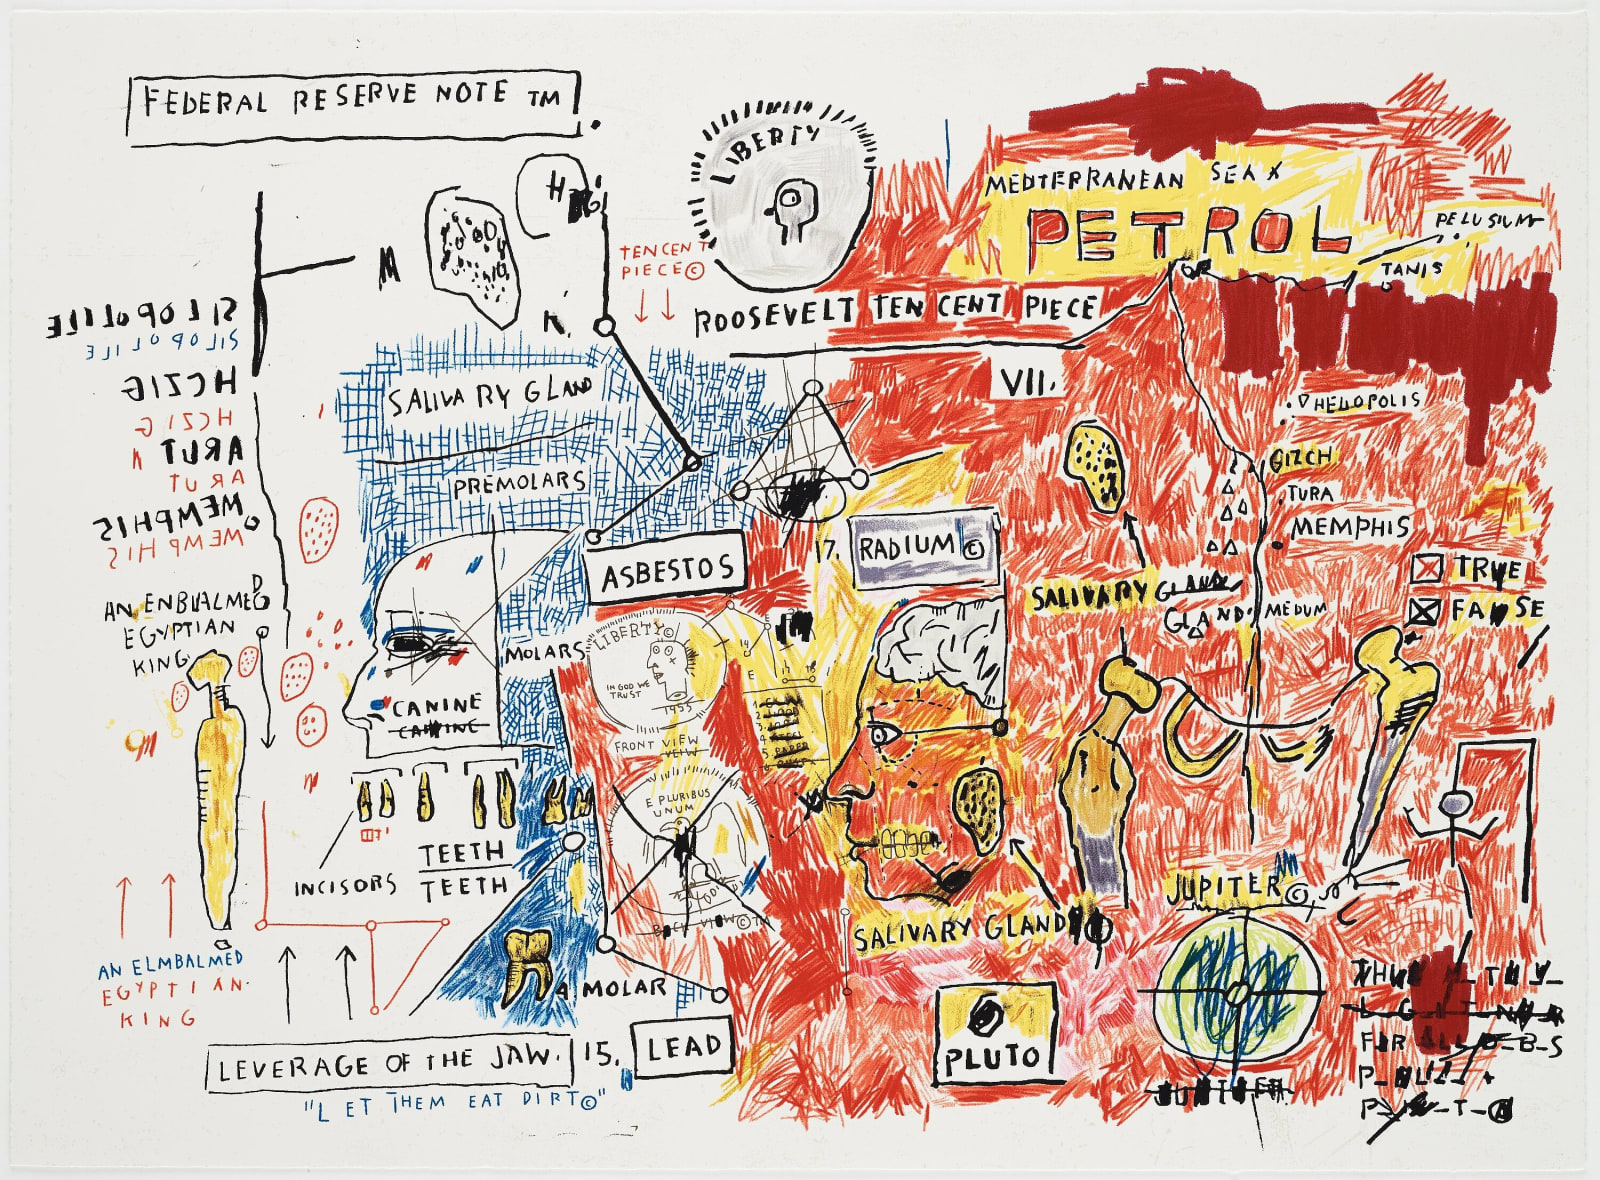 FEDERAL RESERVE NOTE TM
LIBERTY
TEN CENT
PIECE©
ROOSEVELT TEN CENT PIECE
MEDTERRANEAN SEA X
PETROL
PELUSIUM
TANIS
M
SILOPOLILE
SILOPOLILE
HCZIG
HCZIG
ARUT
ARUT
MEMPHIS
MEMPHIS
AN ENBLALMED
EGYPTIAN
KING
SALIVARY GLAND
PREMOLARS
ASBESTOS
MOLARS
CANINE
CANINE
VII.
17. RADIUM ©
HELIOPOLIS
GIZCH
TURA
MEMPHIS
SALIVARY GLAND
GLAND
MEDUM
TRUE
FALSE
LIBERTY©
IN GOD WE
TRUST
1955
FRONT VIEW
VEIW
E PLURIBUS
UNUM
BACK VIEW©TM
5 PAPER
TEETH
TEETH
INCISORS
AN ELMBALMED
EGYPTIAN.
KING
A MOLAR
LEVERAGE OF THE JAW.
15. LEAD
"LET THEM EAT DIRT©"
SALIVARY GLAND
PLUTO
JUPITER©
JUPITER